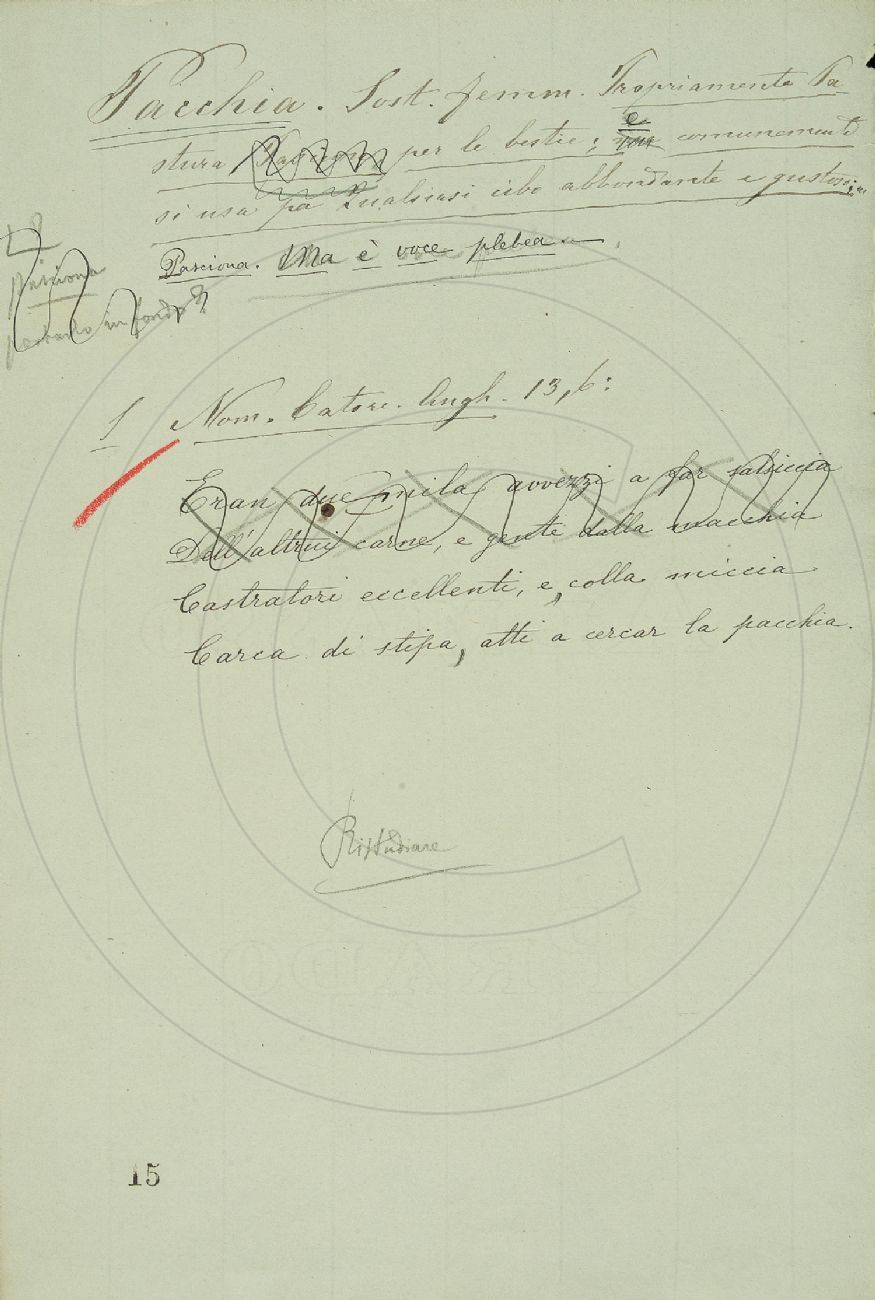 Pacchia. Sost. femm. Propriamente Pa
stura per le bestie; e comunemente
si usa p[er] Qualsiasi cibo abbondante e gustoso;
Pasciona. Ma è voce plebea.
pasciona
in fondo
§ Nom. Catorc. Angh. 13, 6:
Eran due mila avvezzi a far salsiccia
Dell'altrui carne, e gente dalla macchia
Castratori eccellenti, e, colla miccia
Carca di stipa, atti a cercar la pacchia.
Ristudiare
15